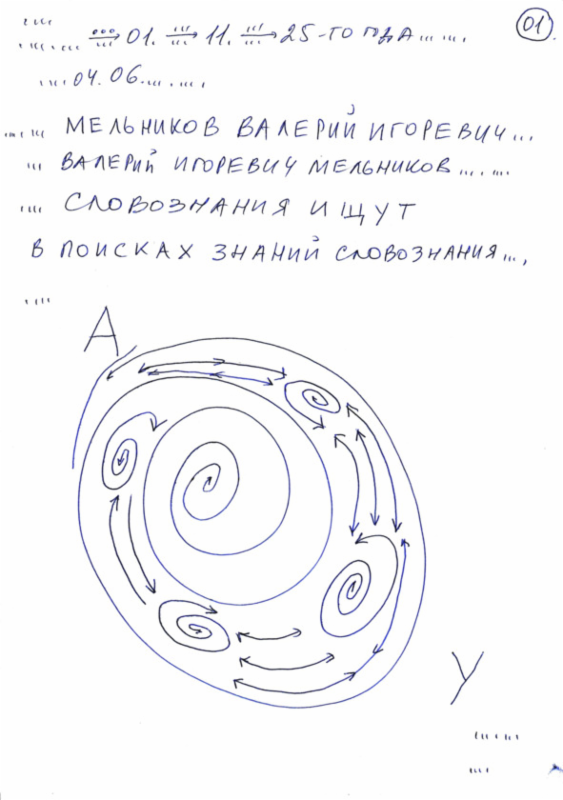 01
.... ...... ⟹ 01. ⟹ 11. ⟹ 25-ТО ГОДА ... ....
....04.06.... ....
.... ... МЕЛЬНИКОВ ВАЛЕРИЙ ИГОРЕВИЧ...
... ВАЛЕРИЙ ИГОРЕВИЧ МЕЛЬНИКОВ... ....
.... СЛОВОЗНАНИЯ ИЩУТ
В ПОИСКАХ ЗНАНИЙ СЛОВОЗНАНИЯ...,
....
А
У